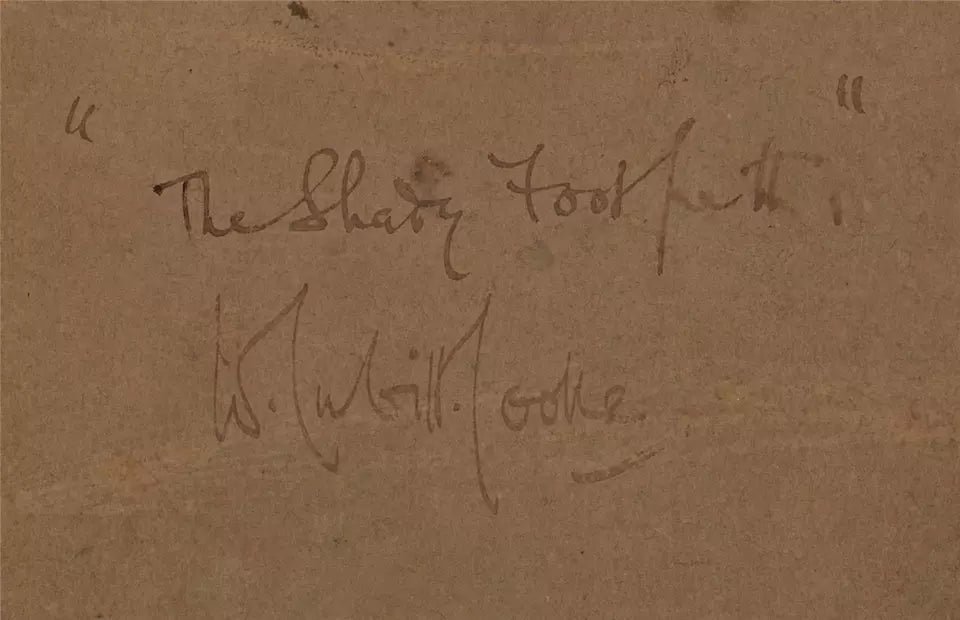 "The Shady Footpath."
W. Cubitt Cooke